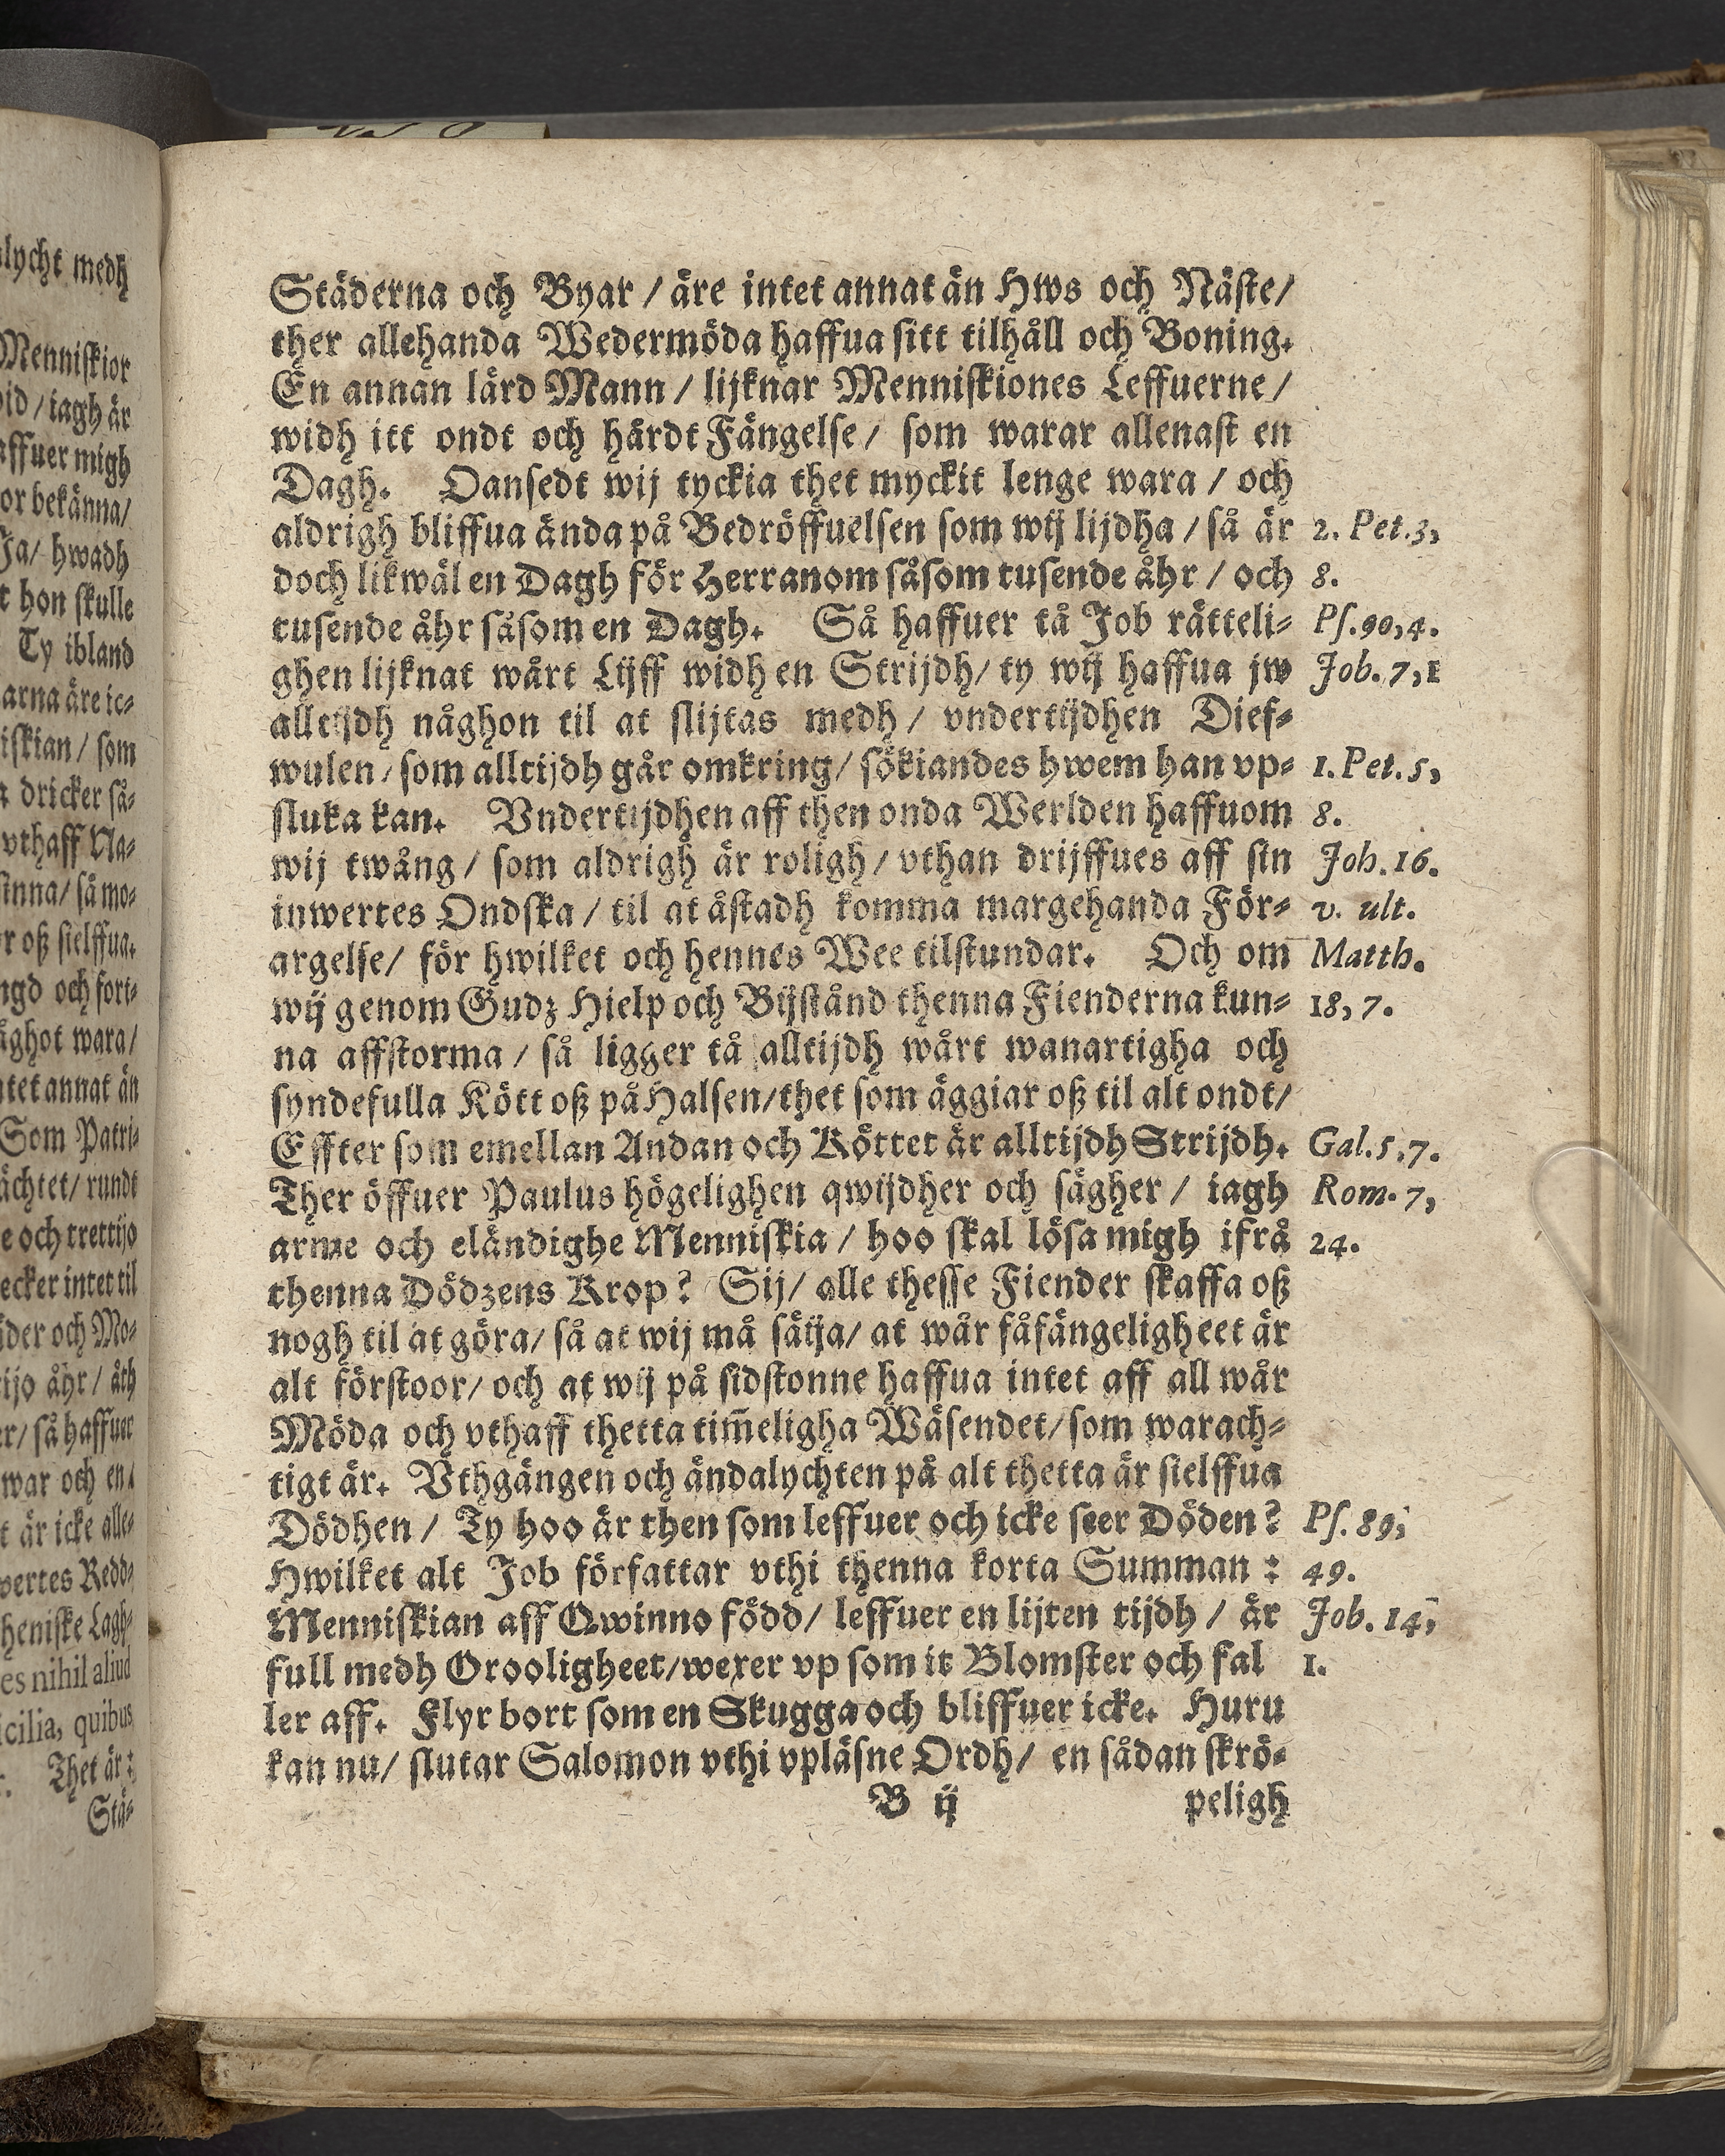 Städerna och Byar / äre intet annat än Hws och Näste/
ther allehanda Wedermöda haffua sitt tilhåll och Boning.
En annan lärd Mann / lijknar Menniskiones Leffuerne/
widh itt ondt och hårdt Fängelse/ som warar allenast en
Dagh. Oansedt wij tyckia thet myckit lenge wara / och
aldrigh bliffua ända på Bedröffuelsen som wij lijdha / så är 2. Pet.3,
doch likwäl en Dagh för Herranom såsom tusende åhr / och 8.
tusende åhr såsom en Dagh. Så haffuer tå Job rätteli= Ps.90,4.
ghen lijknat wårt Lijff widh en Strijdh/ ty wij haffua jw Job. 7,1
alltijdh någhon til at slijtas medh / vndertijdhen Dief=
wulen / som alltijdh går omkring/ sökiandes hwem han vp= 1. Pet. 5,
sluka kan. Vndertijdhen aff then onda Werlden haffuom 8.
wij twång / som aldrigh är roligh / vthan drijffues aff sin Joh. 16.
inwertes Ondska / til at åstadh komma margehanda För= v. ult.
argelse/ för hwilket och hennes Wee tilstundar. Och om Matth.
wij genom Gudz Hielp och Bijstånd thenna Fienderna kun= 18, 7.
na affstorma / så ligger tå alltijdh wårt wanartigha och
syndefulla Kött oß på Halsen/thet som äggiar oß til alt ondt/
Effter som emellan Andan och Köttet är alltijdh Strijdh. Gal.5.7.
Ther öffuer Paulus högelighen qwijdher och sägher / iagh Rom. 7,
arme och eländighe Menniskia / hoo skal lösa migh ifrå 24.
thenna Dödzens Krop? Sij/ alle thesse Fiender skaffa oß
nogh til at göra/ så at wij må säija/ at wår fåfängeligheet är
alt förstoor/ och at wij på sidstonne haffua intet aff all wår
Möda och vthaff thetta tim̃eligha Wäsendet/som warach=
tigt är. Vthgången och ändalychten på alt thetta är sielffua
Dödhen / Ty hoo är then som leffuer och icke seer Döden? Ps. 89,
Hwilket alt Job författar vthi thenna korta Summan : 49.
Menniskian aff Qwinno född/ leffuer en lijten tijdh / är Job. 14,
full medh Orooligheet/wexer vp som it Blomster och fal 1.
ler aff. Flyr bort som en Skugga och bliffuer icke. Huru
kan nu/ slutar Salomon vthi vpläsne Ordh/ en sådan skrö=
B ij peligh